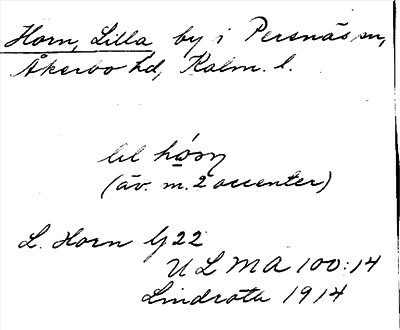 Horn, Lilla, by i Persnäs sn,
Åkerbo hd, Kalm. l.
lel hó̱rn
(äv. m. 2 accenter)
L. Horn ly 22
ULMA 100:14
Lindroth 1914